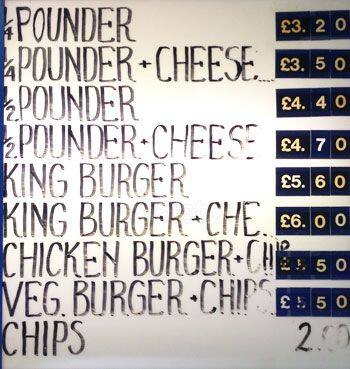 1/4 POUNDER £3.20
1/4 POUNDER + CHEESE... £3.50
1/2 POUNDER £4.40
1/2 POUNDER + CHEESE £4.70
KING BURGER £5.60
KING BURGER + CHE... £6.00
CHICKEN BURGER + CHIP £5.50
VEG. BURGER + CHIPS £5.50
CHIPS 2.00